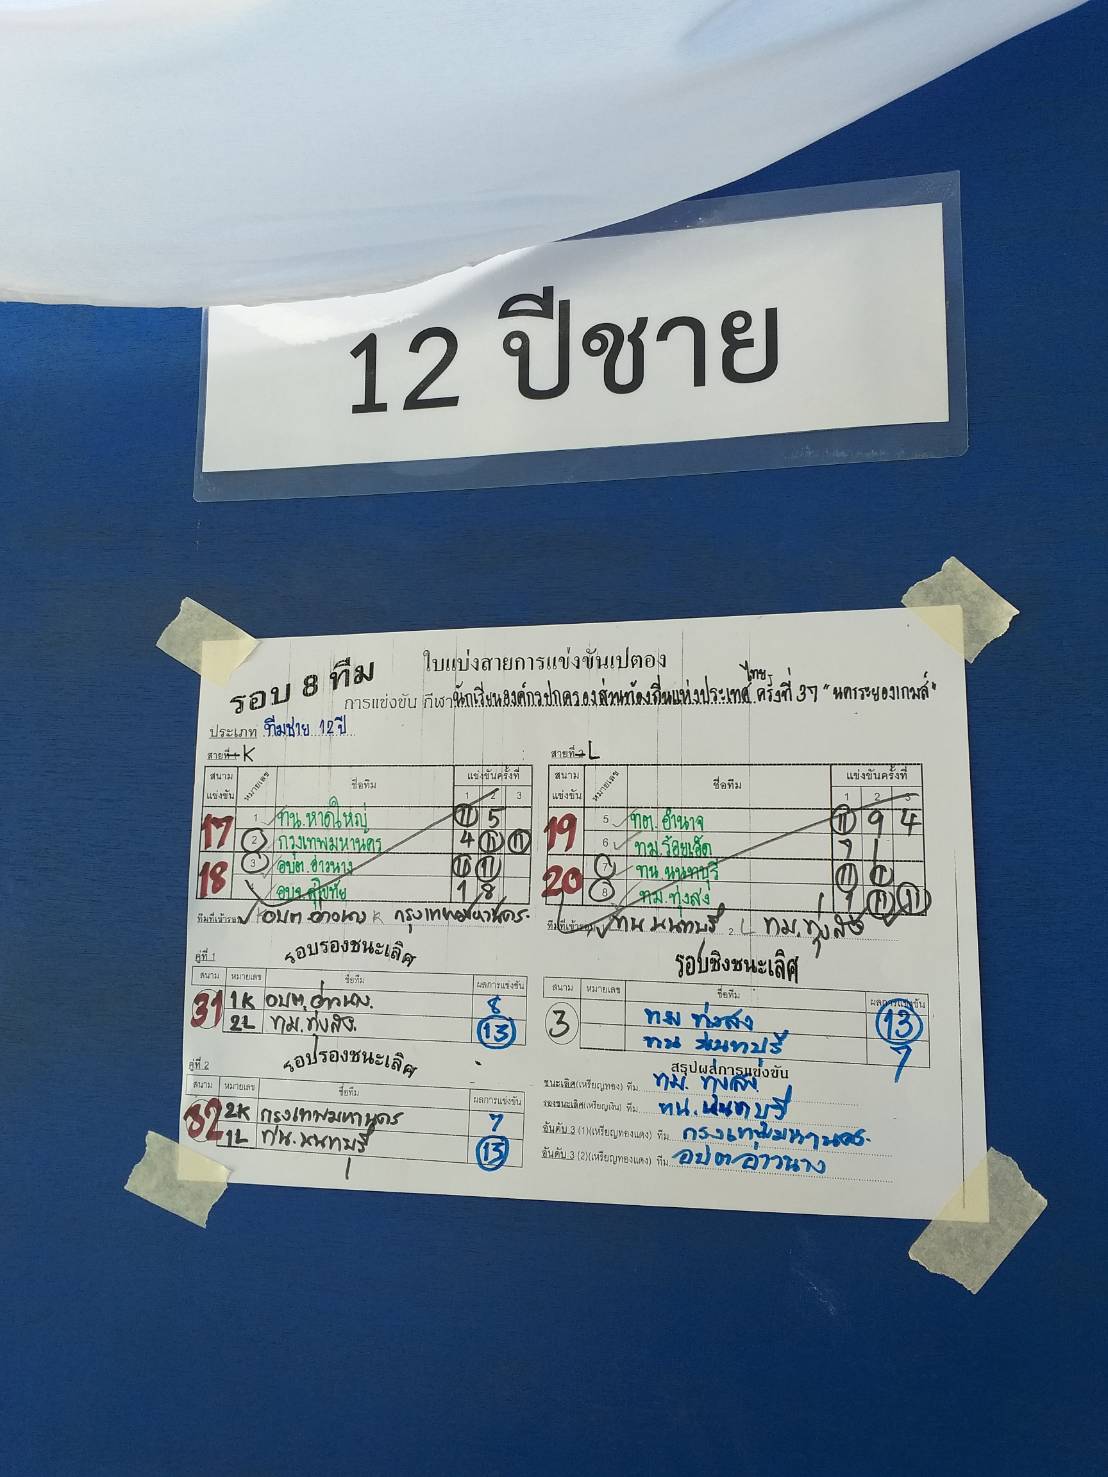 12 ปีชาย
รอบ 8 ทีม
ใบแบ่งสายการแข่งขันเปตอง
การแข่งขัน กีฬานักเรียนองค์กรปกครองส่วนท้องถิ่นแห่งประเทศไทย ครั้งที่ 37 "นครระยองเกมส์"
ประเภท ทีมชาย 12 ปี
สายที่ K
สนามแข่งขัน หมายเลข ชื่อทีม แข่งขันครั้งที่
1 2 3
17 1 ทน.หาดใหญ่ 11 5
2 กรุงเทพมหานคร 4 11 11
18 3 อบต.อ่าวนาง 11 11
อบจ.สุโขทัย 1 8
ทีมที่เข้ารอบ 1K อบต.อ่าวนาง 2K กรุงเทพมหานคร
สายที่ L
สนามแข่งขัน หมายเลข ชื่อทีม แข่งขันครั้งที่
1 2 3
19 5 ทต.อำนาจ 11 9 4
6 ทม.ร้อยเอ็ด 7 1
20 7 ทน.นนทบุรี 11 11
8 ทม.ทุ่งสง 9 11 11
ทีมที่เข้ารอบ ทน.นนทบุรี 2 L ทม.ทุ่งสง
รอบรองชนะเลิศ
คู่ที่ 1
สนาม หมายเลข ชื่อทีม ผลการแข่งขัน
31 1K อบต.อ่าวนาง 8
2L ทม.ทุ่งสง. 13
รอบรองชนะเลิศ
คู่ที่ 2
สนาม หมายเลข ชื่อทีม ผลการแข่งขัน
32 2K กรุงเทพมหานคร 7
1L ทน.นนทบุรี 13
รอบชิงชนะเลิศ
สนาม หมายเลข ชื่อทีม ผลการแข่งขัน
3 ทม ทุ่งสง 13
ทน นนทบุรี 7
สรุปผลการแข่งขัน
ชนะเลิศ(เหรียญทอง) ทีม ทม. ทุ่งสง.
รองชนะเลิศ(เหรียญเงิน) ทีม ทน.นนทบุรี
อันดับ 3 (1)(เหรียญทองแดง) ทีม กรุงเทพมหานคร.
อันดับ 3 (2)(เหรียญทองแดง) ทีม อบต อ่าวนาง